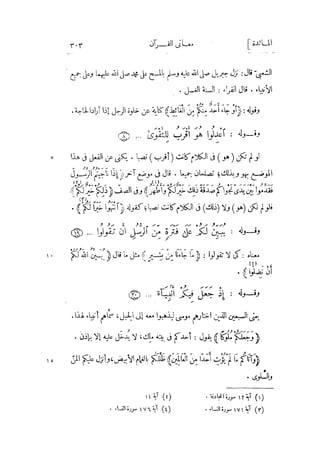 المائدة ] معانى القرآن ٣٠٣
الشعبىّ قال: نزل جبريل صلى الله عليه وسلم بالمسح على محمد صلى الله عليهما وعلى جميع
الأنبياء . قال الفراء : السنة الغسل .
وقوله : ﴿أَوْ جَاءَ أَحَدٌ مِنْكُمْ مِنَ الْغَائِطِ﴾ كناية عن خلوة الرجل إذا أراد الحاجة.
وقوله : اعْدِلُوا هُوَ أَقْرَبُ لِلتَّقْوَىٰ ... ﴿٨﴾
لو لم تكن (هو) فى الكلام كانت (أقرب) نصبا . يكنى عن الفعل فى هذا ٥
الموضع بهو وبذلك؛ تصلحان جميعا. قال فى موضع آخر ﴿إِذَا نَاجَيْتُمُ الرَّسُولَ
فَقَدِّمُوا بَيْنَ يَدَىْ نَجْوَاكُمْ صَدَقَةً ذَٰلِكَ خَيْرٌ لَكُمْ وَأَطْهَرُ﴾ وفى الصف ﴿ذَٰلِكُمْ خَيْرٌ لَكُمْ﴾
فلو لم تكن (هو) ولا (ذلك) فى الكلام كانت نصبا؛ كقوله ﴿انْتَهُوا خَيْرًا لَكُمْ﴾ .
وقوله : يُبَيِّنُ لَكُمْ عَلَىٰ فَتْرَةٍ مِنَ الرُّسُلِ أَنْ تَقُولُوا ... ﴿١٩﴾
معناه : كى لا تقولوا : ﴿مَا جَاءَنَا مِنْ بَشِيرٍ﴾ مثل ما قال ﴿يُبَيِّنُ اللهُ لَكُمْ ١٠
أَنْ تَضِلُّوا﴾ .
وقوله : إِذْ جَعَلَ فِيكُمْ أَنْبِيَاءَ ... ﴿٢٠﴾
يعنى السبعين الذين اختارهم موسى ليذهبوا معه إلى الجبل، سماهم أنبياء لهذا.
﴿وَجَعَلَكُمْ مُلُوكًا﴾ يقول : أحدكم فى بيته ملك، لا يُدخل عليه إلا بإذن .
﴿وَآتَاكُمْ مَا لَمْ يُؤْتِ أَحَدًا مِنَ الْعَالَمِينَ﴾ ظلّلكم بالغمام الأبيض، وأنزل عليكم المنّ ١٥
والسلوى .
(١) آية ١٢ سورة المجادلة . (٢) آية ١١
(٣) آية ١٧١ سورة النساء . (٤) آية ١٧٦ سورة النساء .